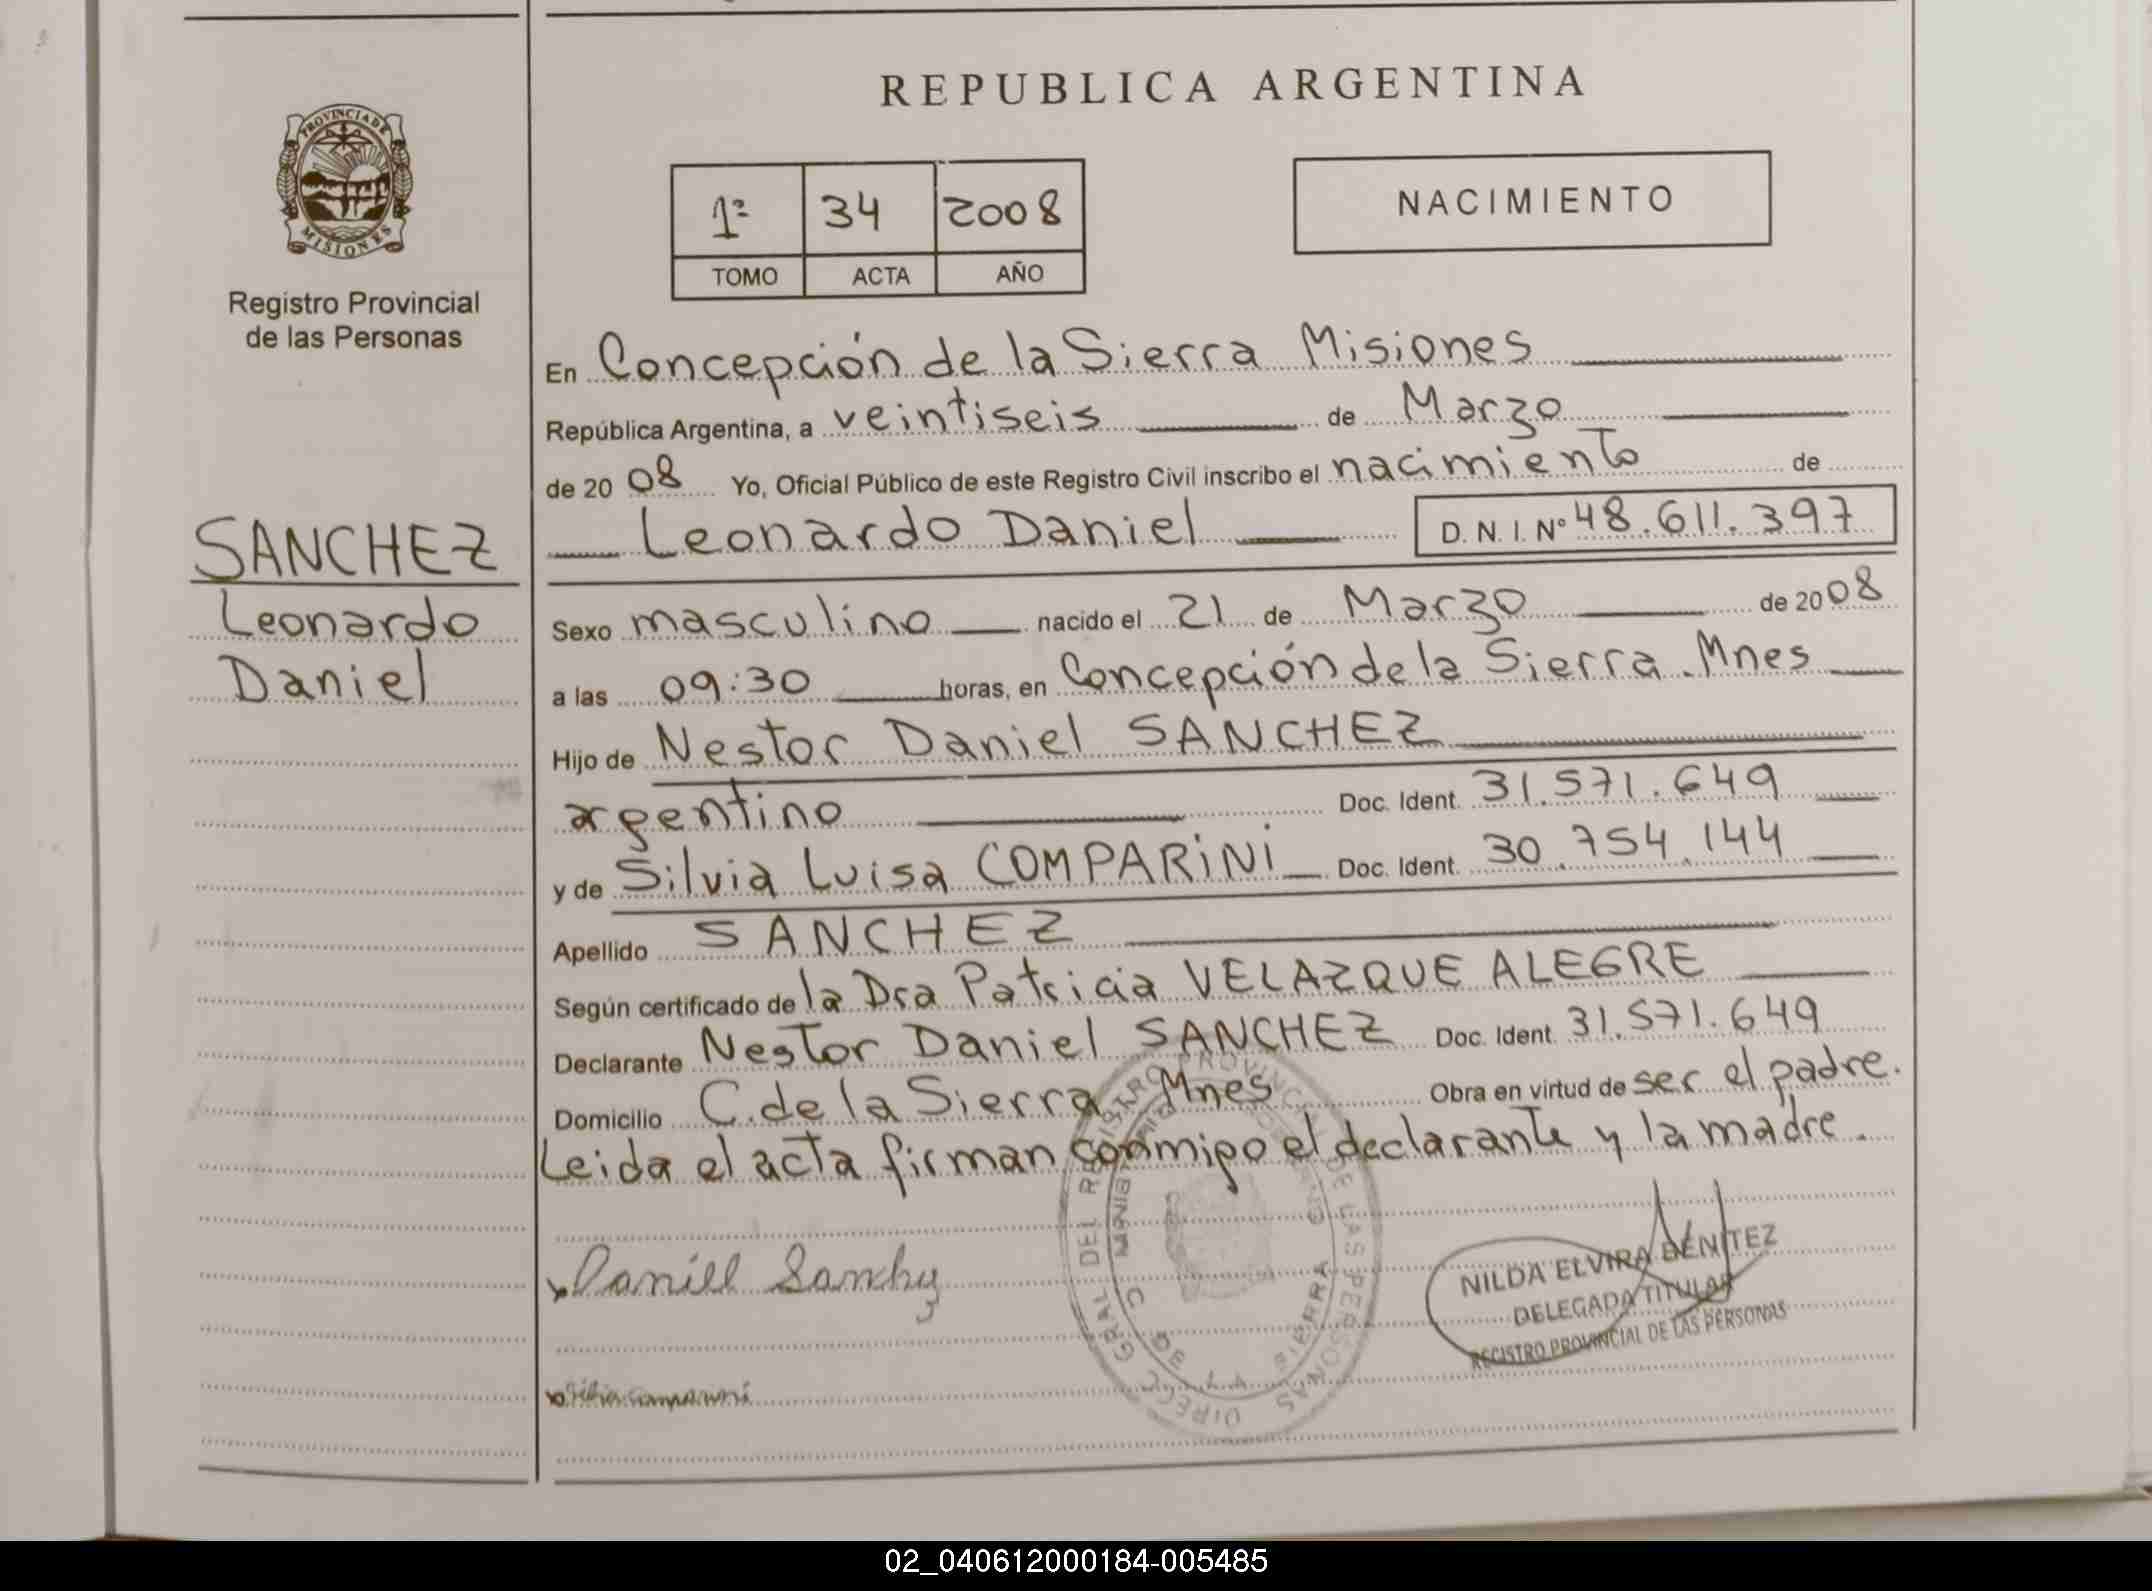 REPUBLICA ARGENTINA
PROVINCIA DE
MISIONES
Registro Provincial
de las Personas
1º 34 2008
TOMO ACTA AÑO
NACIMIENTO
SANCHEZ
Leonardo
Daniel
En Concepción de la Sierra Misiones
República Argentina, a veintiseis de Marzo
de 2008 Yo, Oficial Público de este Registro Civil inscribo el nacimiento de
Leonardo Daniel D.N.I. Nº 48.611.397
Sexo masculino nacido el 21 de Marzo de 2008
a las 09:30 horas, en Concepción de la Sierra. Mnes
Hijo de Nestor Daniel SANCHEZ
argentino Doc. Ident. 31.571.649
y de Silvia Luisa COMPARiNi Doc. Ident. 30.754.144
Apellido SANCHEZ
Según certificado de la Dra Patricia VELAZQUE ALEGRE
Declarante Nestor Daniel SANCHEZ Doc. Ident. 31.571.649
Domicilio C. de la Sierra Mnes Obra en virtud de ser el padre.
Leida el acta firman conmigo el declarante y la madre.
DIRECC GRAL DEL REGISTRO PROVINCIAL DE LAS PERSONAS
C DE LA SIERRA
Daniel Sanchez
NILDA ELVIRA BENITEZ
DELEGADA TITULAR
REGISTRO PROVINCIAL DE LAS PERSONAS
02_040612000184-005485